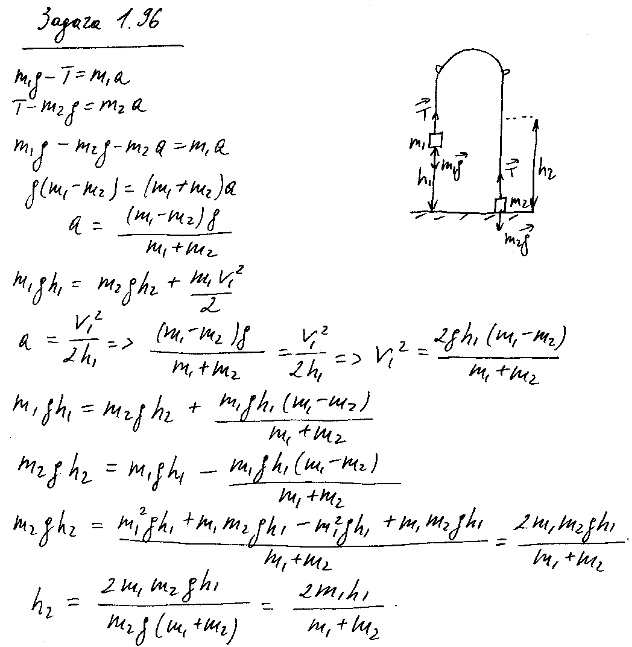 Задача 1.96
m₁g – T = m₁a
T – m₂g = m₂a
m₁g – m₂g – m₂a = m₁a
g(m₁ – m₂) = (m₁ + m₂)a
a = (m₁ – m₂)g / (m₁ + m₂)
m₁gh₁ = m₂gh₂ + m₁v₁² / 2
a = v₁² / 2h₁ => (m₁ – m₂)g / (m₁ + m₂) = v₁² / 2h₁ => v₁² = 2gh₁(m₁ – m₂) / (m₁ + m₂)
m₁gh₁ = m₂gh₂ + m₁gh₁(m₁ – m₂) / (m₁ + m₂)
m₂gh₂ = m₁gh₁ – m₁gh₁(m₁ – m₂) / (m₁ + m₂)
m₂gh₂ = (m₁²gh₁ + m₁m₂gh₁ – m₁²gh₁ + m₁m₂gh₁) / (m₁ + m₂) = 2m₁m₂gh₁ / (m₁ + m₂)
h₂ = 2m₁m₂gh₁ / m₂g(m₁ + m₂) = 2m₁h₁ / (m₁ + m₂).
T⃗
m₁
m₁g⃗
h₁
T⃗
h₂
m₂
m₂g⃗